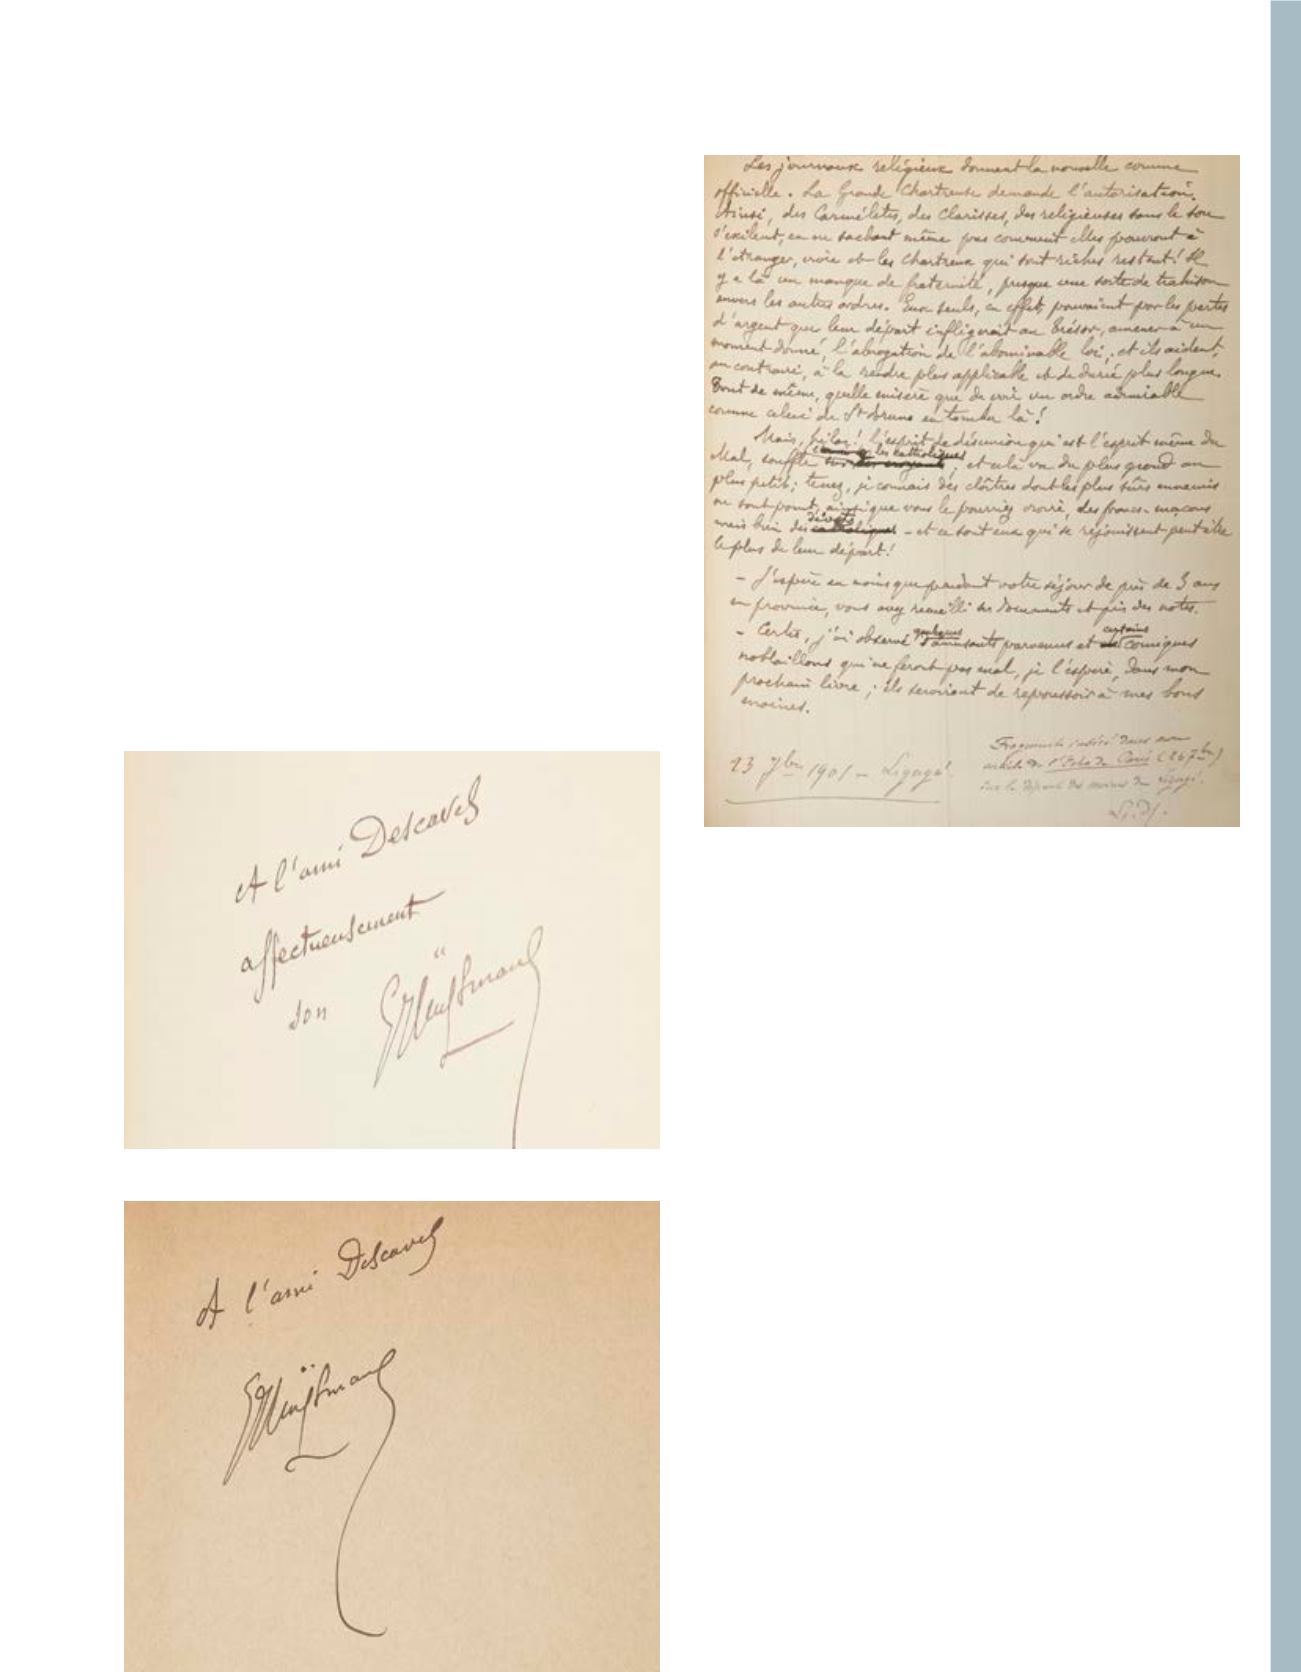 A l'ami Descaves
affectueusement
son
GHuÿsmans
A l'ami Descaves
GHuÿsmans
Les journaux religieux donnent la nouvelle comme
officielle. La Grande Chartreuse demande l'autorisation.
Ainsi, des Carmélites, des Clarisses, des religieuses sans le sou
s'exilent, en ne sachant même pas comment elles pourront à
l'étranger, vivre et les Chartreux qui sont riches restent! Il
y a là un manque de fraternité, presque une sorte de trahison
envers les autres ordres. Eux seuls, en effet, pouvaient par les pertes
d'argent que leur départ infligerait au Trésor, amener à un
moment donné, l'abrogation de l'abominable loi, et ils aident,
au contraire, à la rendre plus applicable et de durée plus longue.
Tout de même, quelle misère que de voir un ordre admirable
comme celui de St Bruno en tomber là!
Mais, hélas! l'esprit de désunion qui est l'esprit même du
les catholiques
Mal, souffle sur des croyants, et cela va du plus grand au
plus petit; tenez, je connais des cloîtres dont les plus sûrs ennemis
ne sont point, ainsi que vous le pourriez croire, des francs-maçons
dévots
mais bien des catholiques - et ce sont eux qui se réjouissent peut-être
le plus de leur départ!
- J'espère au moins que pendant votre séjour de près de 3 ans
en province, vous avez recueilli des documents et pris des notes.
quelques certains
- Certes, j'ai observé d'amusants parvenus et de comiques
noblaillons qui ne feront pas mal, je l'espère, dans mon
prochain livre; ils serviront de repoussoir à mes bons
moines.
23 7bre 1901 - Ligugé.
Fragments inséré dans mon
article de l'Echo de Paris (26 7bre)
sur le départ des moines de Ligugé.
L.D.